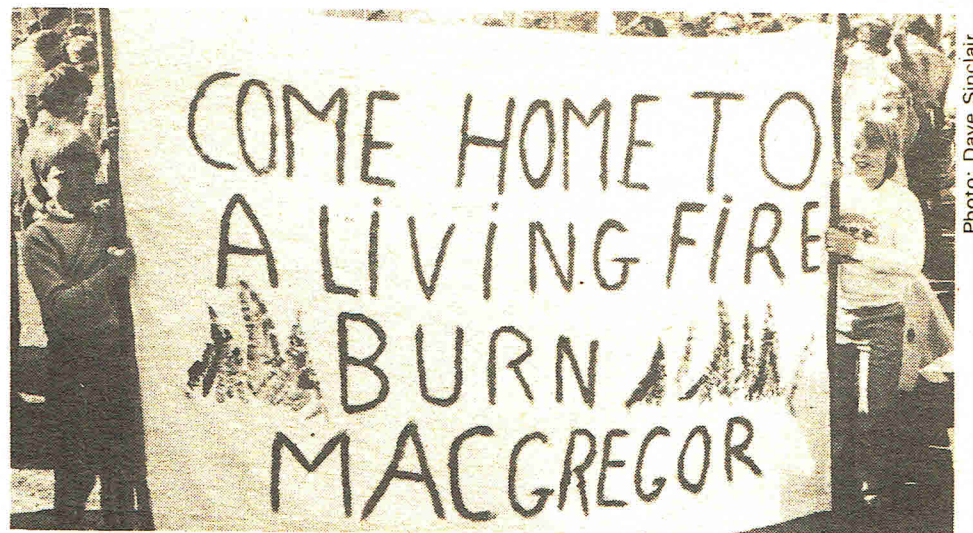 COME HOME TO
A LIVING FIRE
BURN
MACGREGOR
Photo: Dave Sinclair